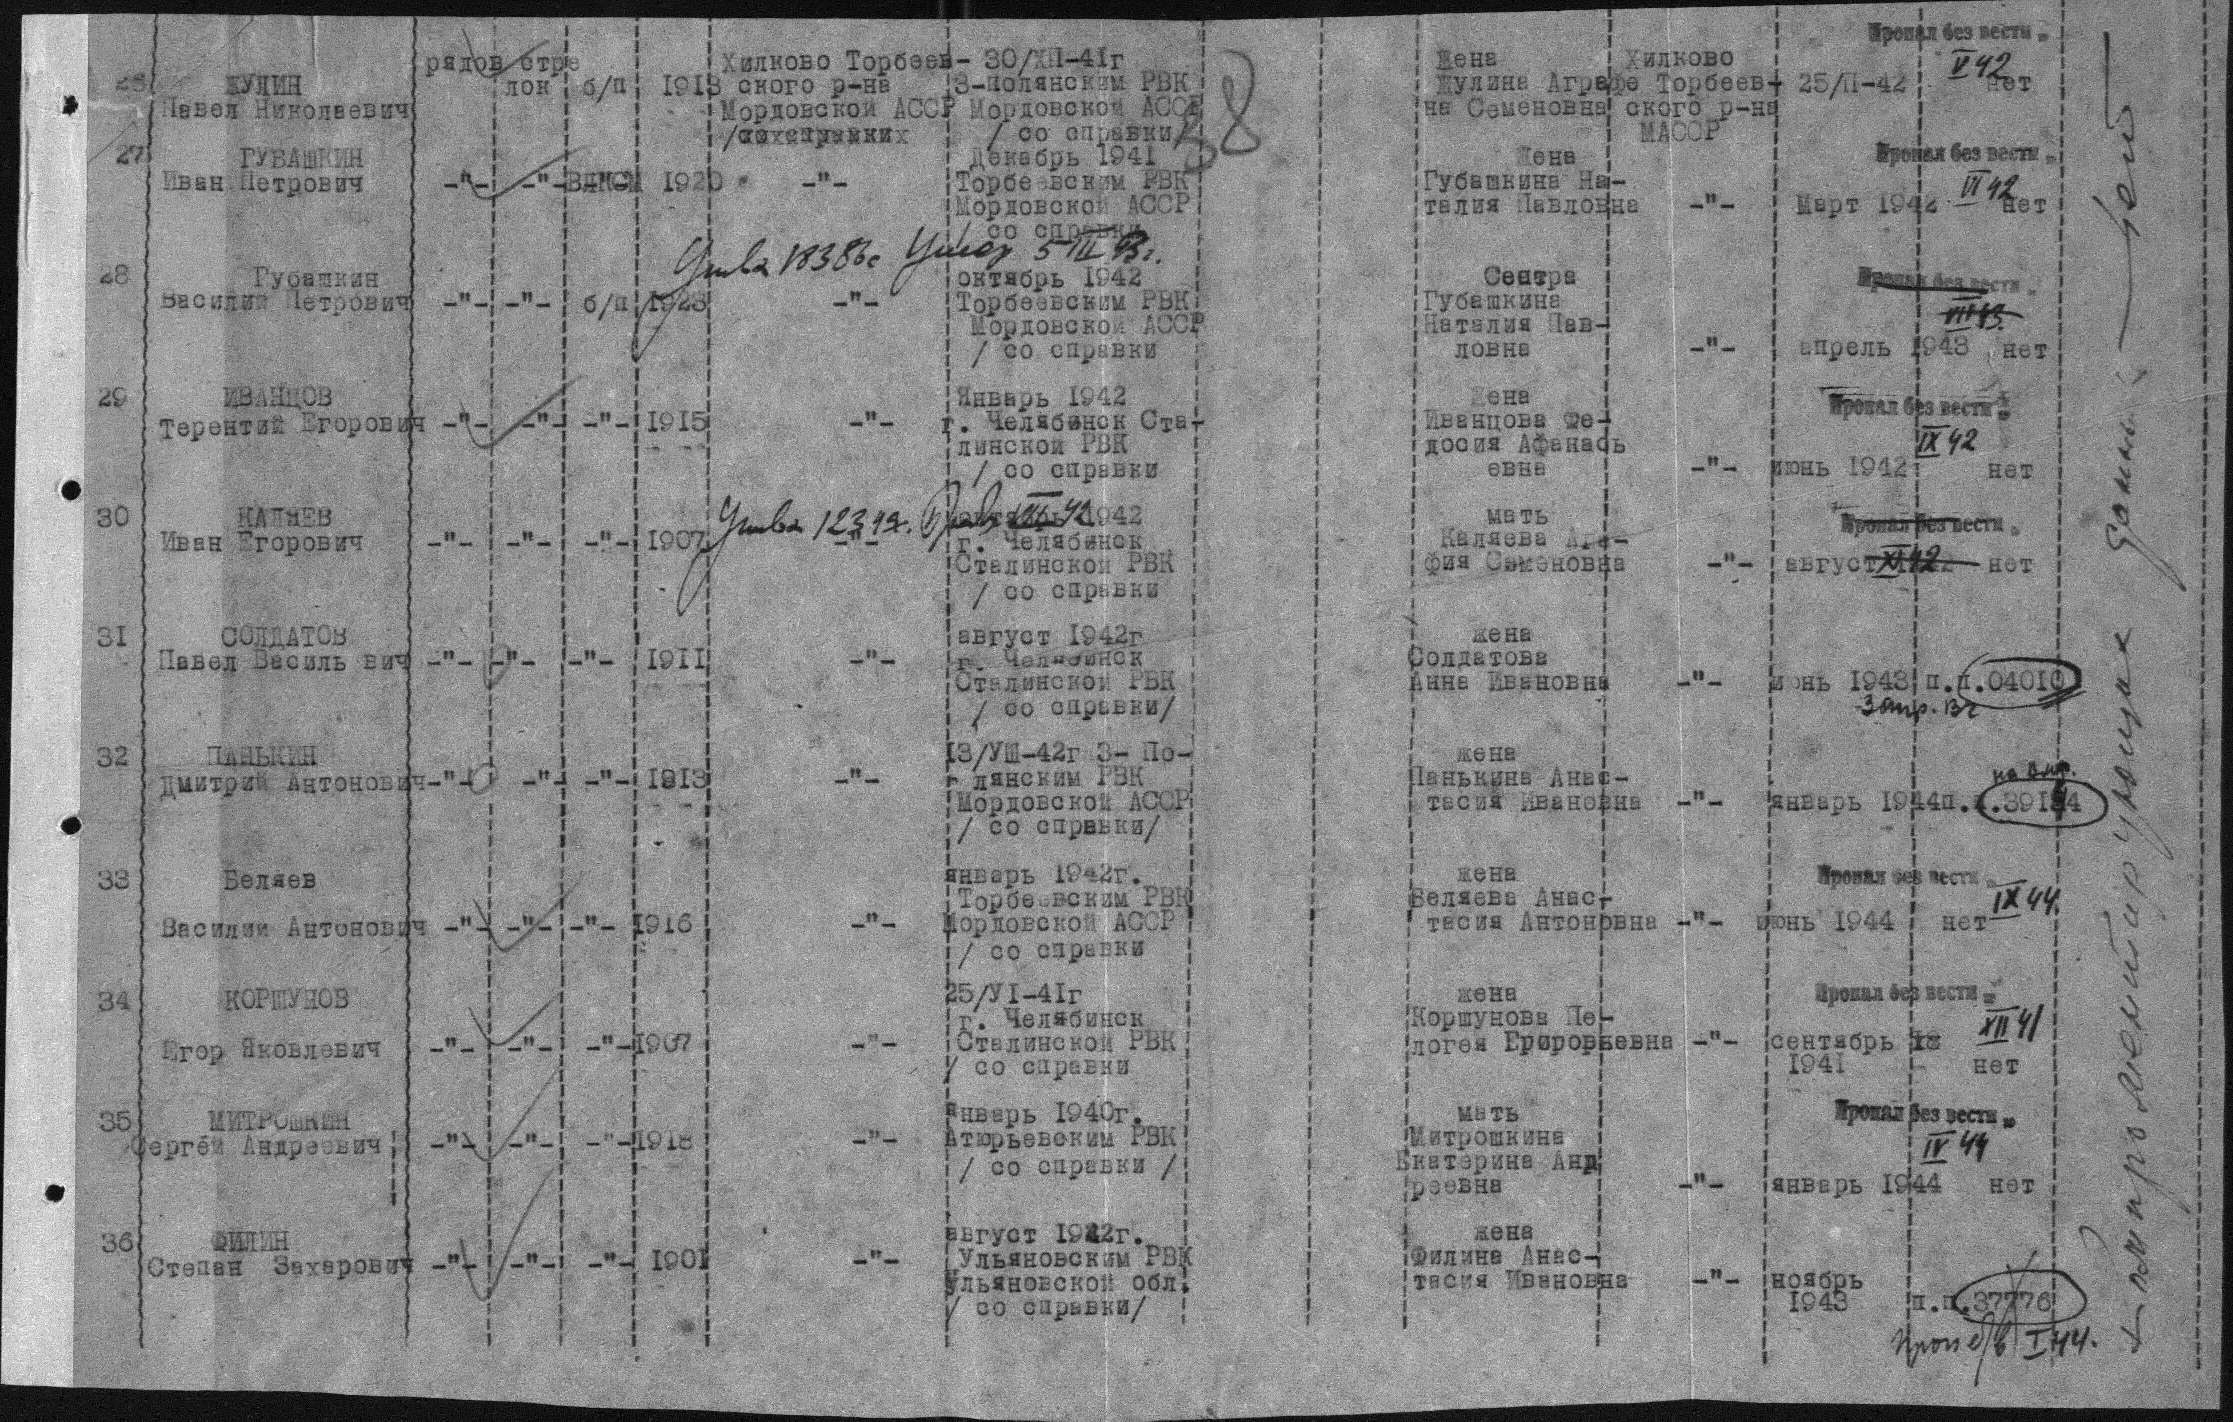 Пропал без вести
рядов стре Хилково Торбеев- 30/ХП-41г Жена Хилково V 42
ЖУЛИН лок б/п 1913 ского р-на З-полянским РВК Жулина Аграфе Торбеев- 25/П-42 нет
Павел Николаевич Мордовской АССР Мордовской АССР на Семеновна ского р-на
/ со справки/ 38 МАССР
27 ГУБАШКИН Декабрь 1941 Жена Пропал без вести
Иван Петрович -"- -"- ВЛКСМ 1920 -"- Торбеевским РВК Губашкина На- VI 42
Мордовской АССР талия Павловна -"- Март 1942 нет
со справки
умер 5 III 43г.
28 Губашкин октябрь 1942 Сестра Пропал без вести
Василий Петрович -"- -"- б/п 1923 -"- Торбеевским РВК Губашкина VII 43.
Мордовской АССР Наталия Пав-
/ со справки ловна -"- апрель 1943 нет
29 ИВАНЦОВ Январь 1942 Жена Пропал без вести
Терентий Егорович -"- -"- -"- 1915 -"- г. Челябинск Ста- Иванцова Фе- IX 42
линской РВК досия Афанась
/ со справки евна -"- июнь 1942 нет
30 КАЛЯЕВ 1942 мать Пропал без вести
Иван Егорович -"- -"- -"- 1907 -"- г. Челябинск Каляева Ага-
Сталинской РВК фия Семеновна -"- август XI 42 нет
/ со справки
31 СОЛДАТОВ август 1942г жена
Павел Василь вич -"- -"- -"- 1911 -"- г. Челябинск Солдатова
Сталинской РВК Анна Ивановна -"- июнь 1943 п.п.04010
/ со справки/
32 ПАНЬКИН 13/УШ-42г З- По- жена
Дмитрий Антонович -"- -"- -"- 1913 -"- лянским РВК Панькина Анас-
Мордовской АССР тасия Ивановна -"- январь 1944
/ со справки/
33 Беляев январь 1942г. жена Пропал без вести
Торбеевским РВК Беляева Анас- IX 44.
Василий Антонович -"- -"- -"- 1916 -"- Мордовской АССР тасия Антоновна -"- июнь 1944 нет
/ со справки
34 КОРШУНОВ 25/У1-41г жена Пропал без вести
г. Челябинск Коршунова Пе- XII 41
Егор Яковлевич -"- -"- -"- 1907 -"- Сталинской РВК логея Григорьевна -"- сентябрь
/ со справки 1941 нет
35 МИТРОШКИН январь 1940г. мать Пропал без вести
Сергей Андреевич -"- -"- -"- 1918 -"- Атюрьевским РВК Митрошкина IV 44
/ со справки / Екатерина Анд
реевна -"- январь 1944 нет
36 ФИЛИН август 1942г. жена
Степан Захарович -"- -"- -"- 1901 -"- Ульяновским РВК Филина Анас-
Ульяновской обл. тасия Ивановна -"- ноябрь
/ со справки/ 1943 п.п.37776
проп б/в I 44.